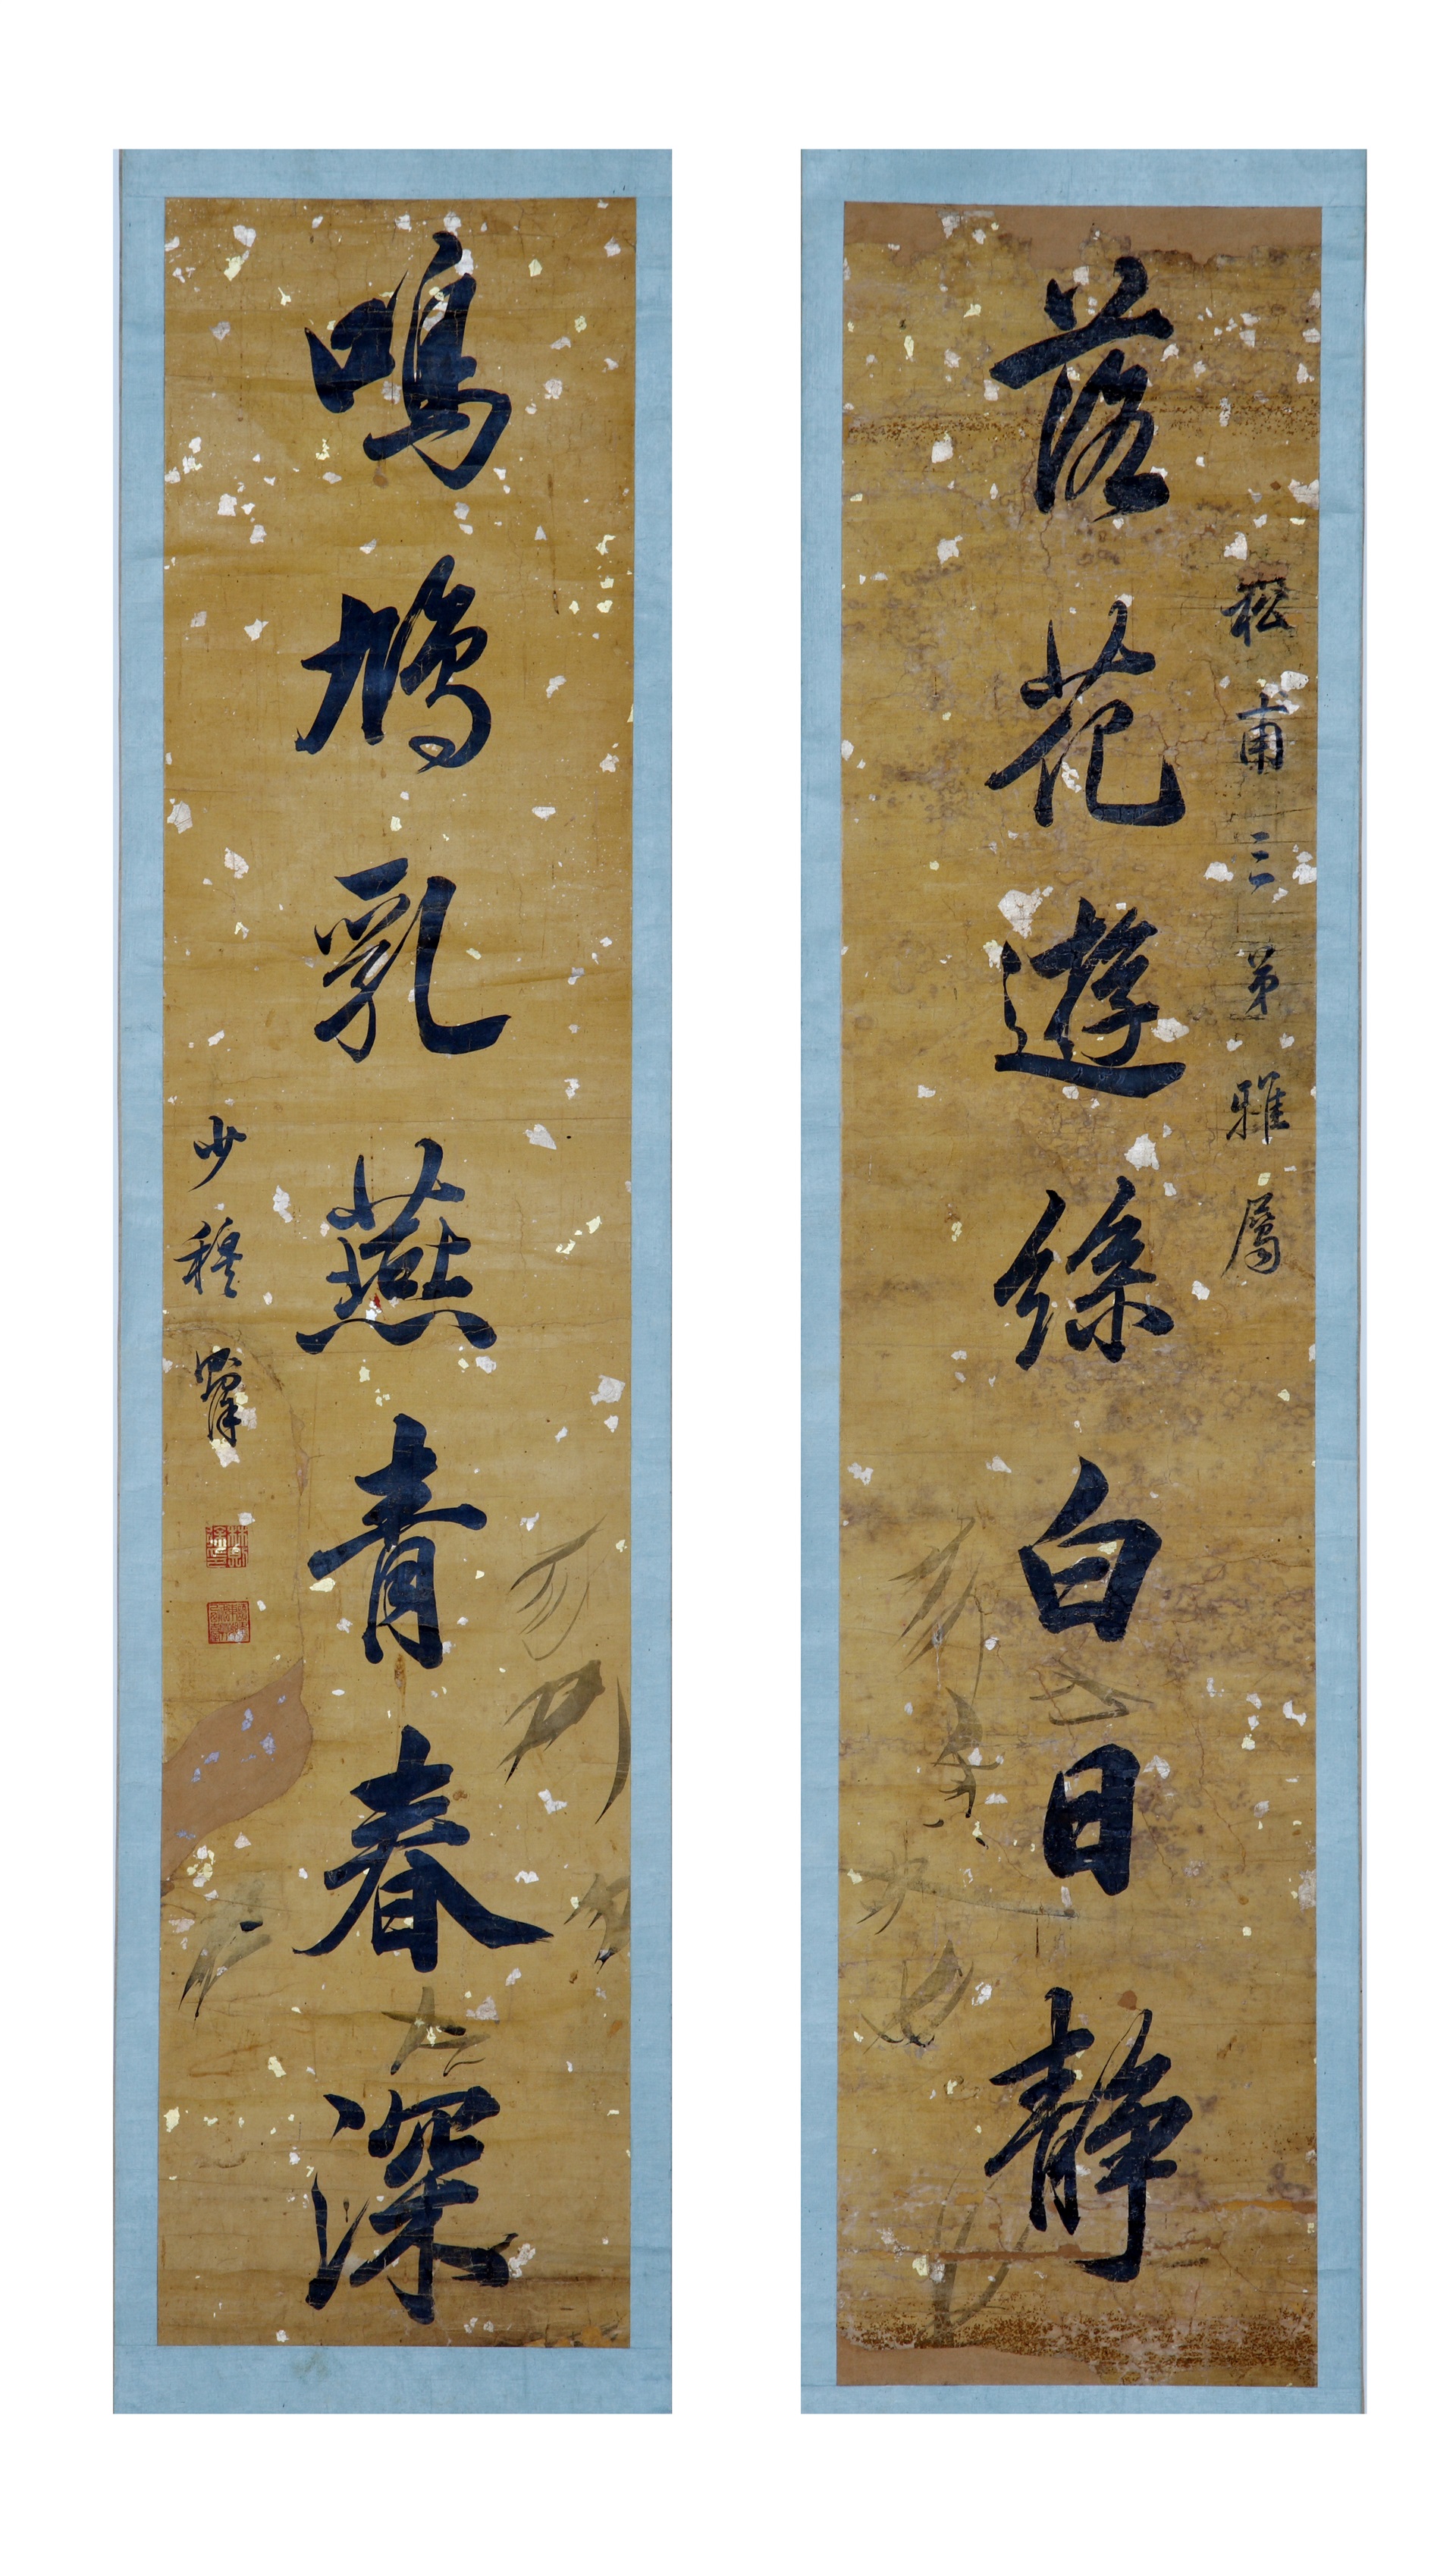 松甫三弟雅屬
落花遊絲白日靜
鳴鳩乳燕青春深
少穆